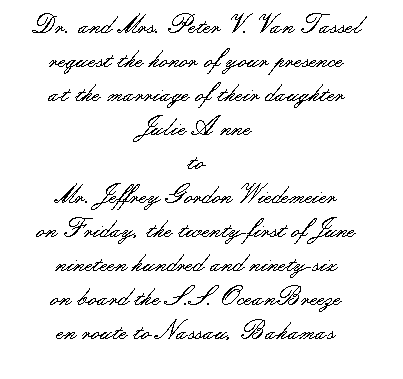 Dr. and Mrs. Peter V. Van Tassel
request the honor of your presence
at the marriage of their daughter
Julie Anne
to
Mr. Jeffrey Gordon Wiedemeier
on Friday, the twenty-first of June
nineteen hundred and ninety-six
on board the S.S. OceanBreeze
en route to Nassau, Bahamas